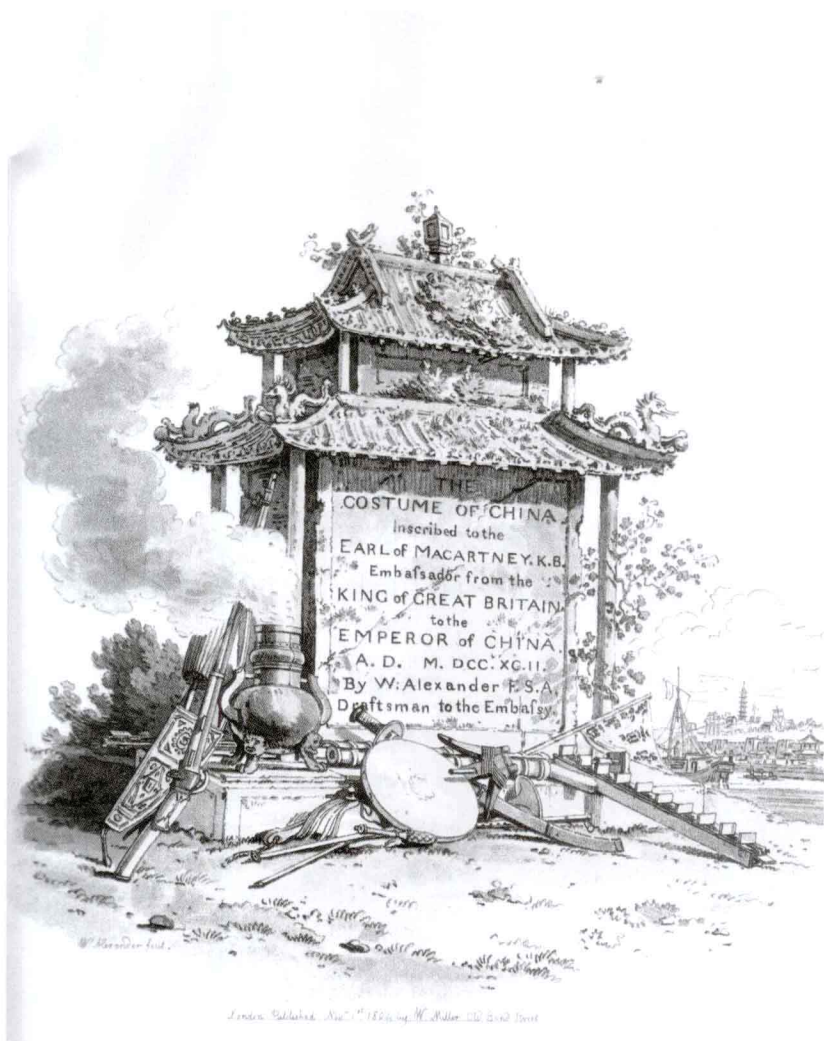 THE
COSTUME OF CHINA
Inscribed to the
EARL of MACARTNEY. K.B.
Embaſsador from the
KING of GREAT BRITAIN
to the
EMPEROR of CHINA
A. D. M. DCC. XC.II.
By W: Alexander F.S.A.
Draftsman to the Embaſsy
W. Alexander fecit.
London Published Nov. 1st by W. Miller Old Bond Street